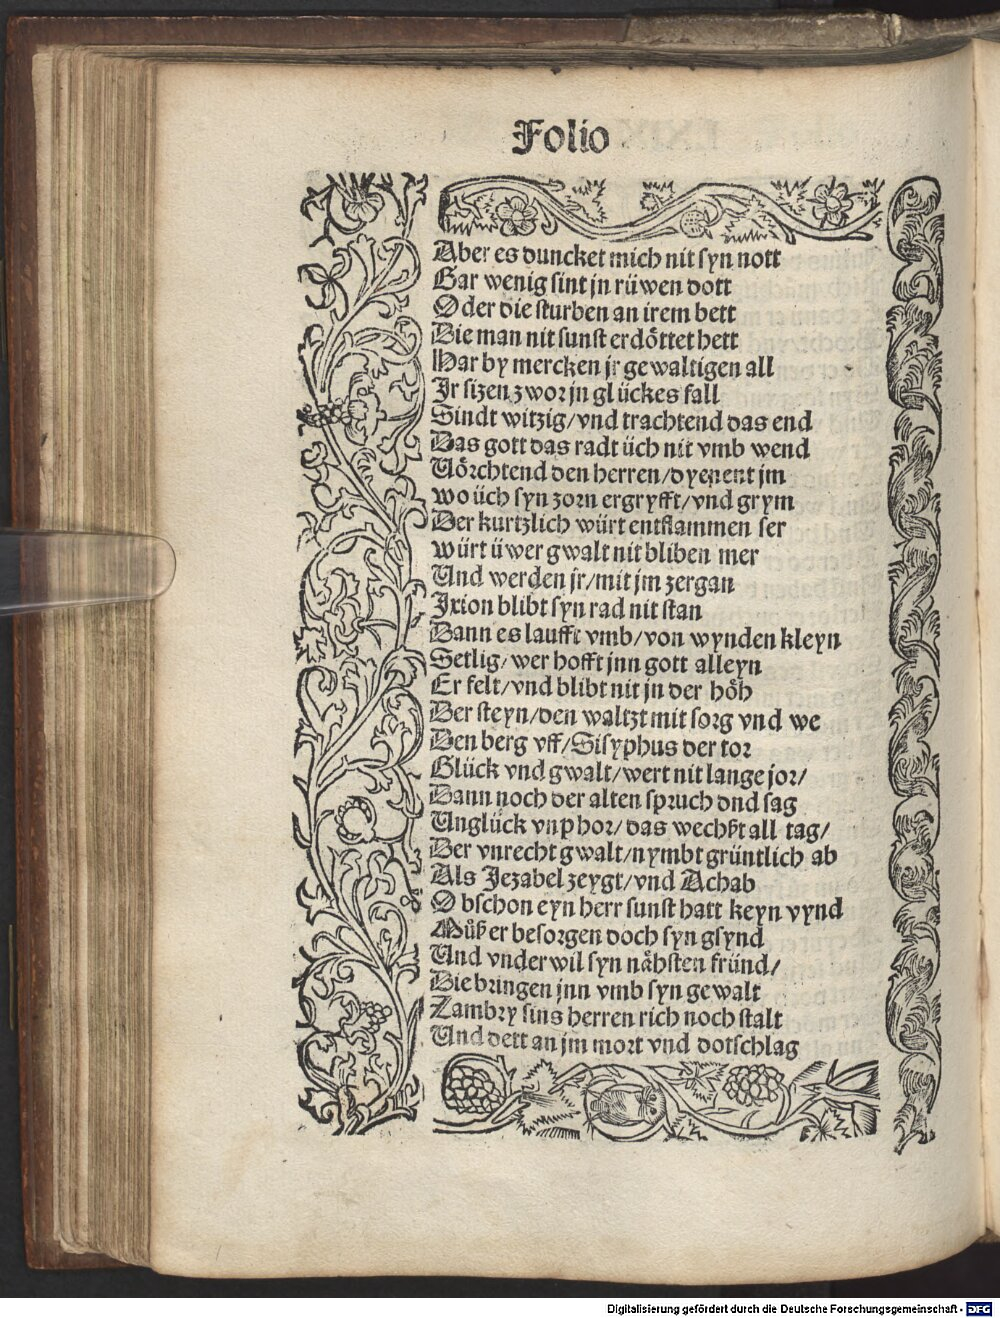 Folio
Aber es duncket mich nit syn nott
Gar wenig sint jn rüwen dott
Oder die sturben an irem bett
Die man nit sunst erdöttet hett
Har by mercken jr gewaltigen all
Jr sizen zwor jn glückes fall
Sindt witzig/ vnd trachtend das end
Das gott das radt üch nit vmb wend
Vörchtend den herren/ dyenent jm
wo üch syn zorn ergryfft/ vnd grym
Der kurtzlich würt entflammen ser
würt üwer gwalt nit bliben mer
Und werden jr/ mit jm zergan
Jxion blibt syn rad nit stan
Dann es laufft vmb/ von wynden kleyn
Setlig/ wer hofft jnn gott alleyn
Er felt/ vnd blibt nit jn der höh
Der steyn/ den waltzt mit sorg vnd we
Den berg vff/ Sisyphus der tor
Glück vnd gwalt/ wert nit lange jor/
Dann noch der alten spruch vnd sag
Unglück vnp hor/ das wechßt all tag/
Der vnrecht gwalt/ nymbt grüntlich ab
Als Jezabel zeygt/ vnd Achab
Obschon eyn herr sunst hatt keyn vynd
Müß er besorgen doch syn gsynd
Und vnder wil syn nähsten fründ/
Die bringen jnn vmb syn gewalt
Zambry sins herren rich noch stalt
Und dett an jm mort vnd dotschlag
Digitalisierung gefördert durch die Deutsche Forschungsgemeinschaft - DFG